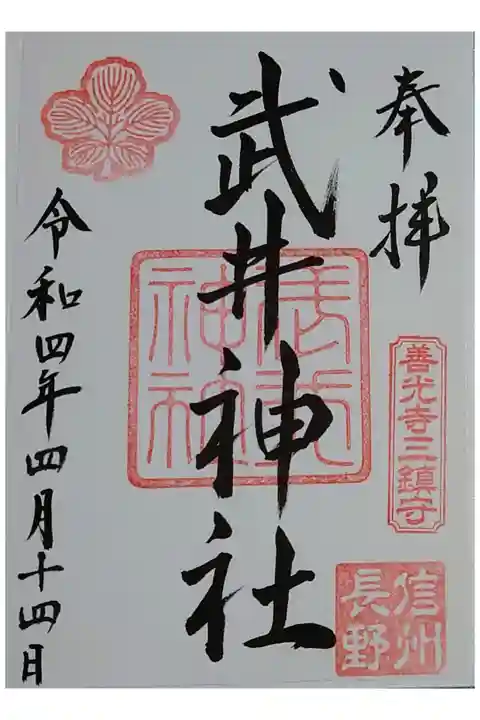 奉拝
善光寺三鎮守
信州
長野
武井神社
令和四年四月十四日